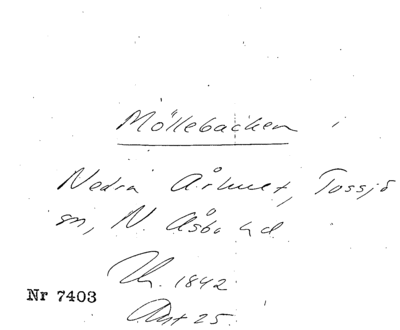 Möllebacken i
Nedra Århult, Tossjö
sn, N. Åsbo hd.
Uh. 1842.
Akt 25.
Nr 7403